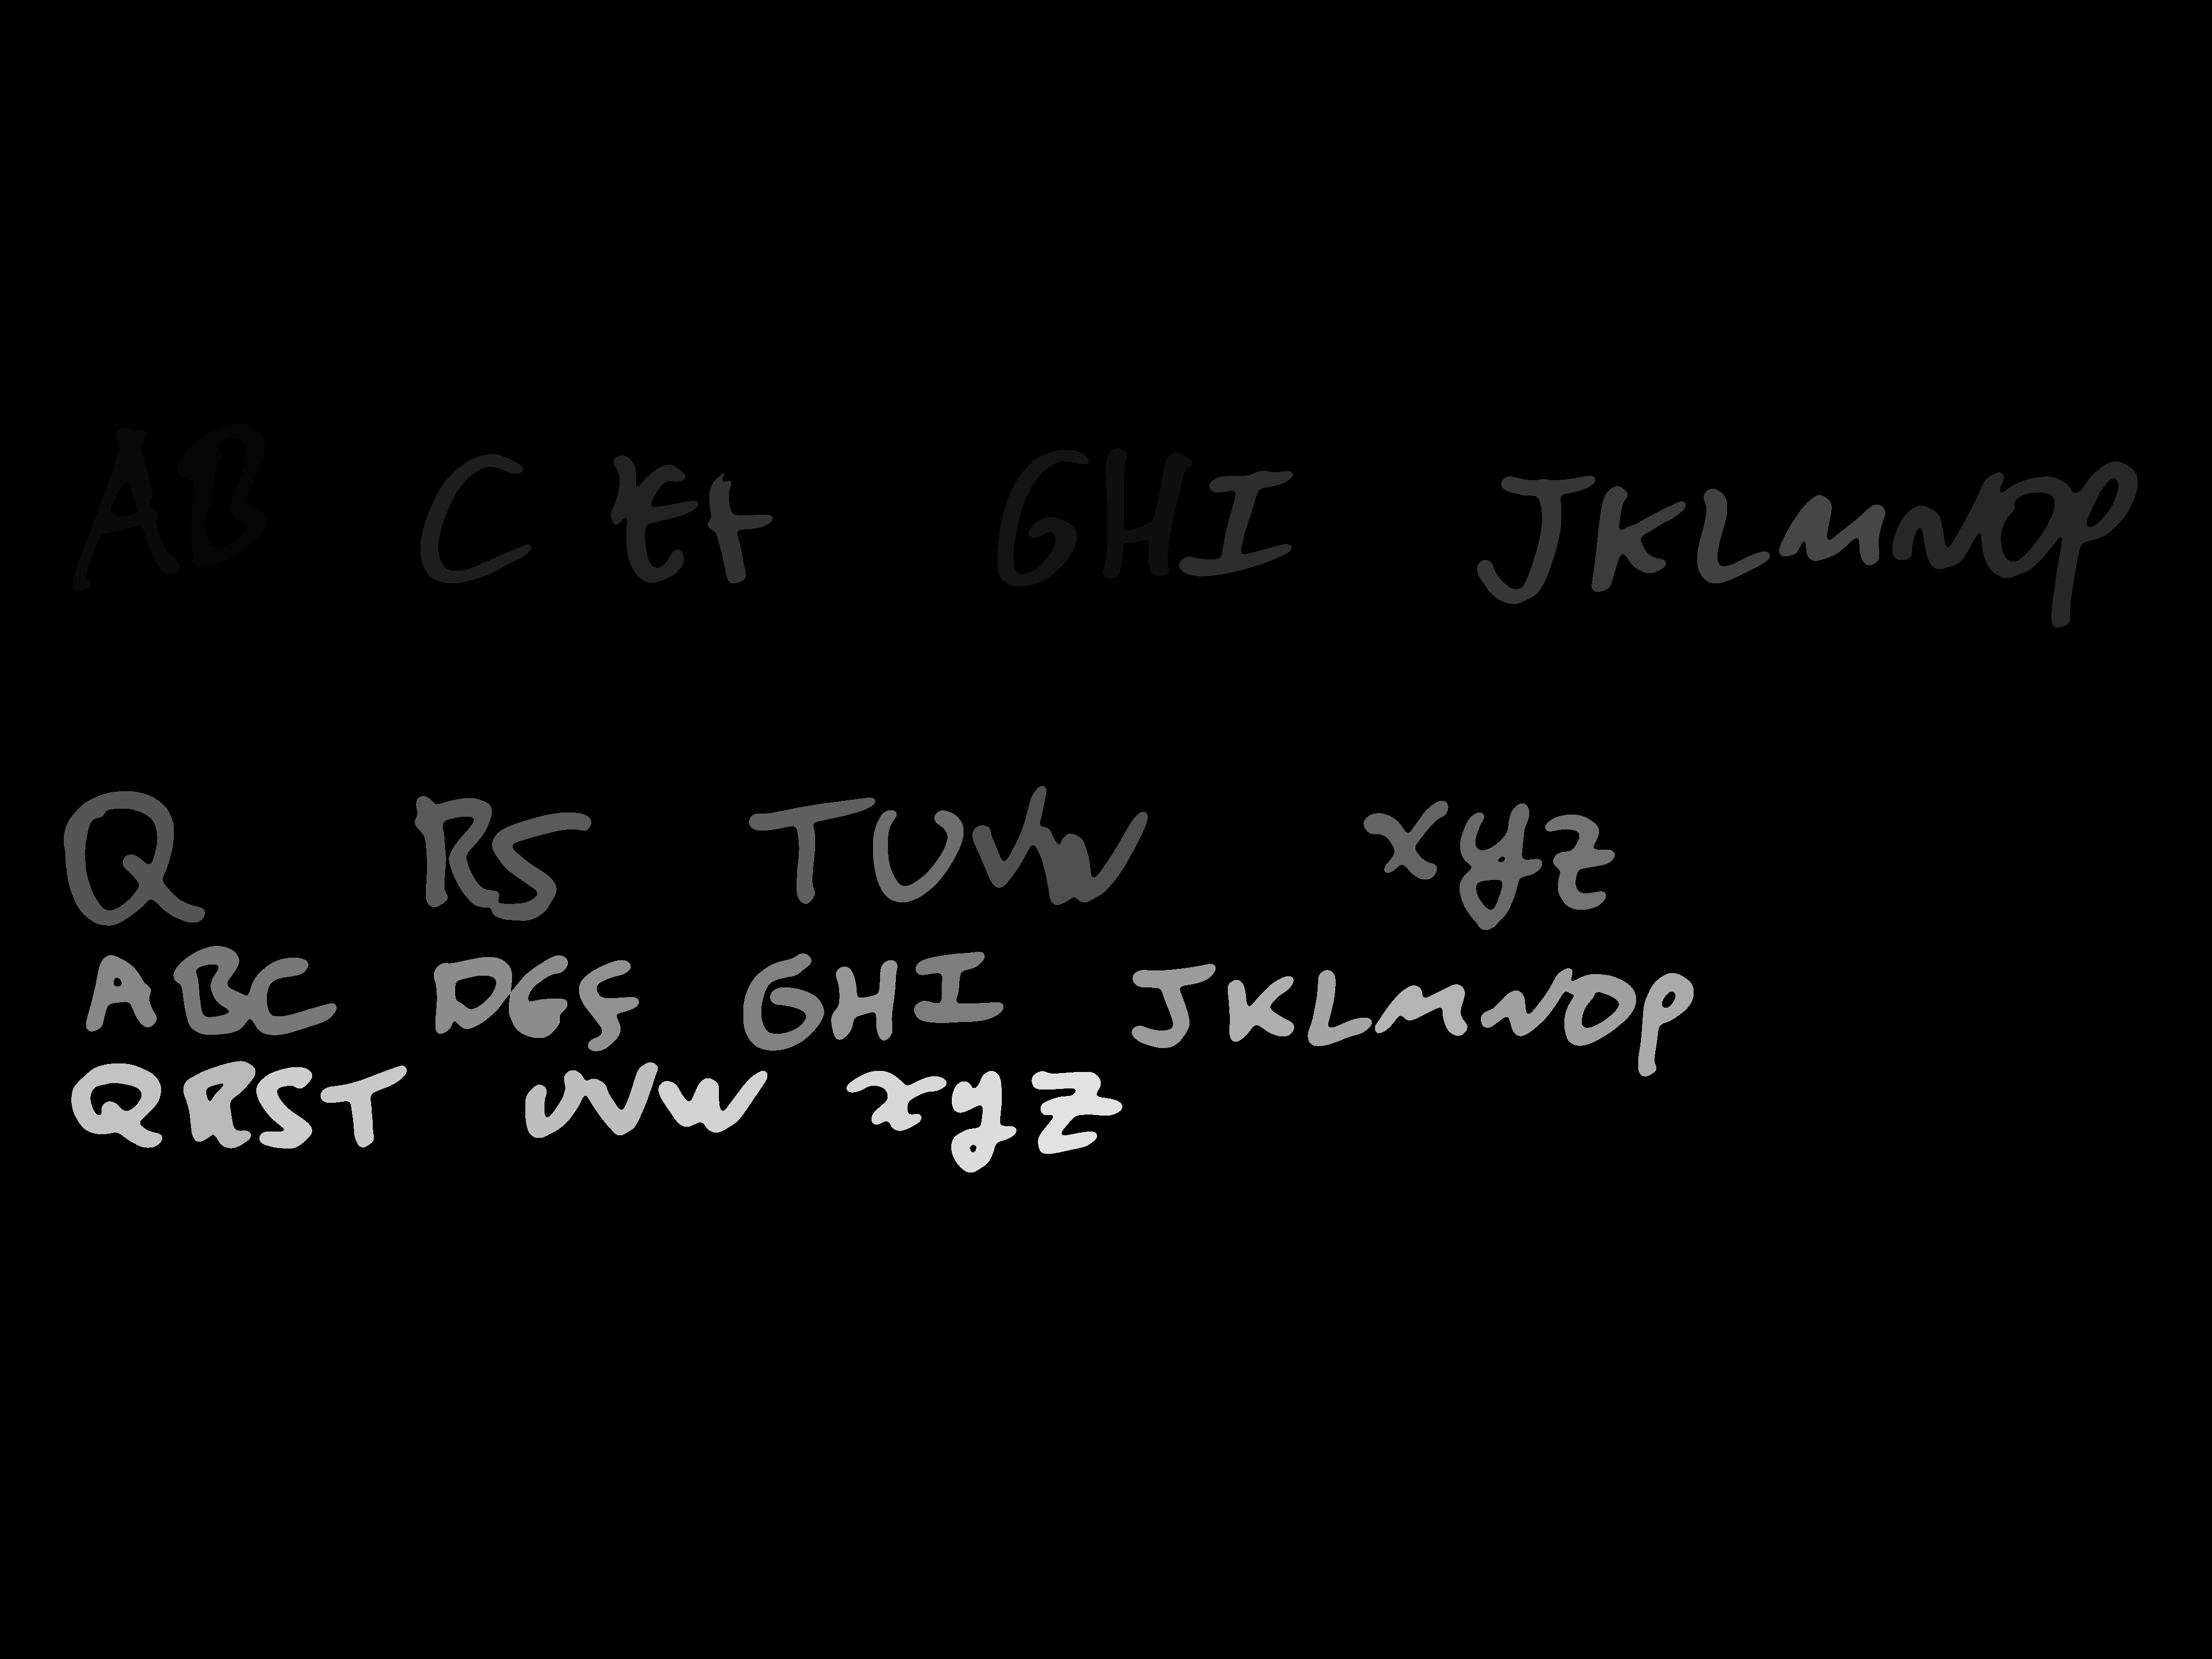 AB C EF GHI JKLMNOP
Q RS TUVW xyz
ABC DEF GHI JKLMNOp
QRST UVW xyz